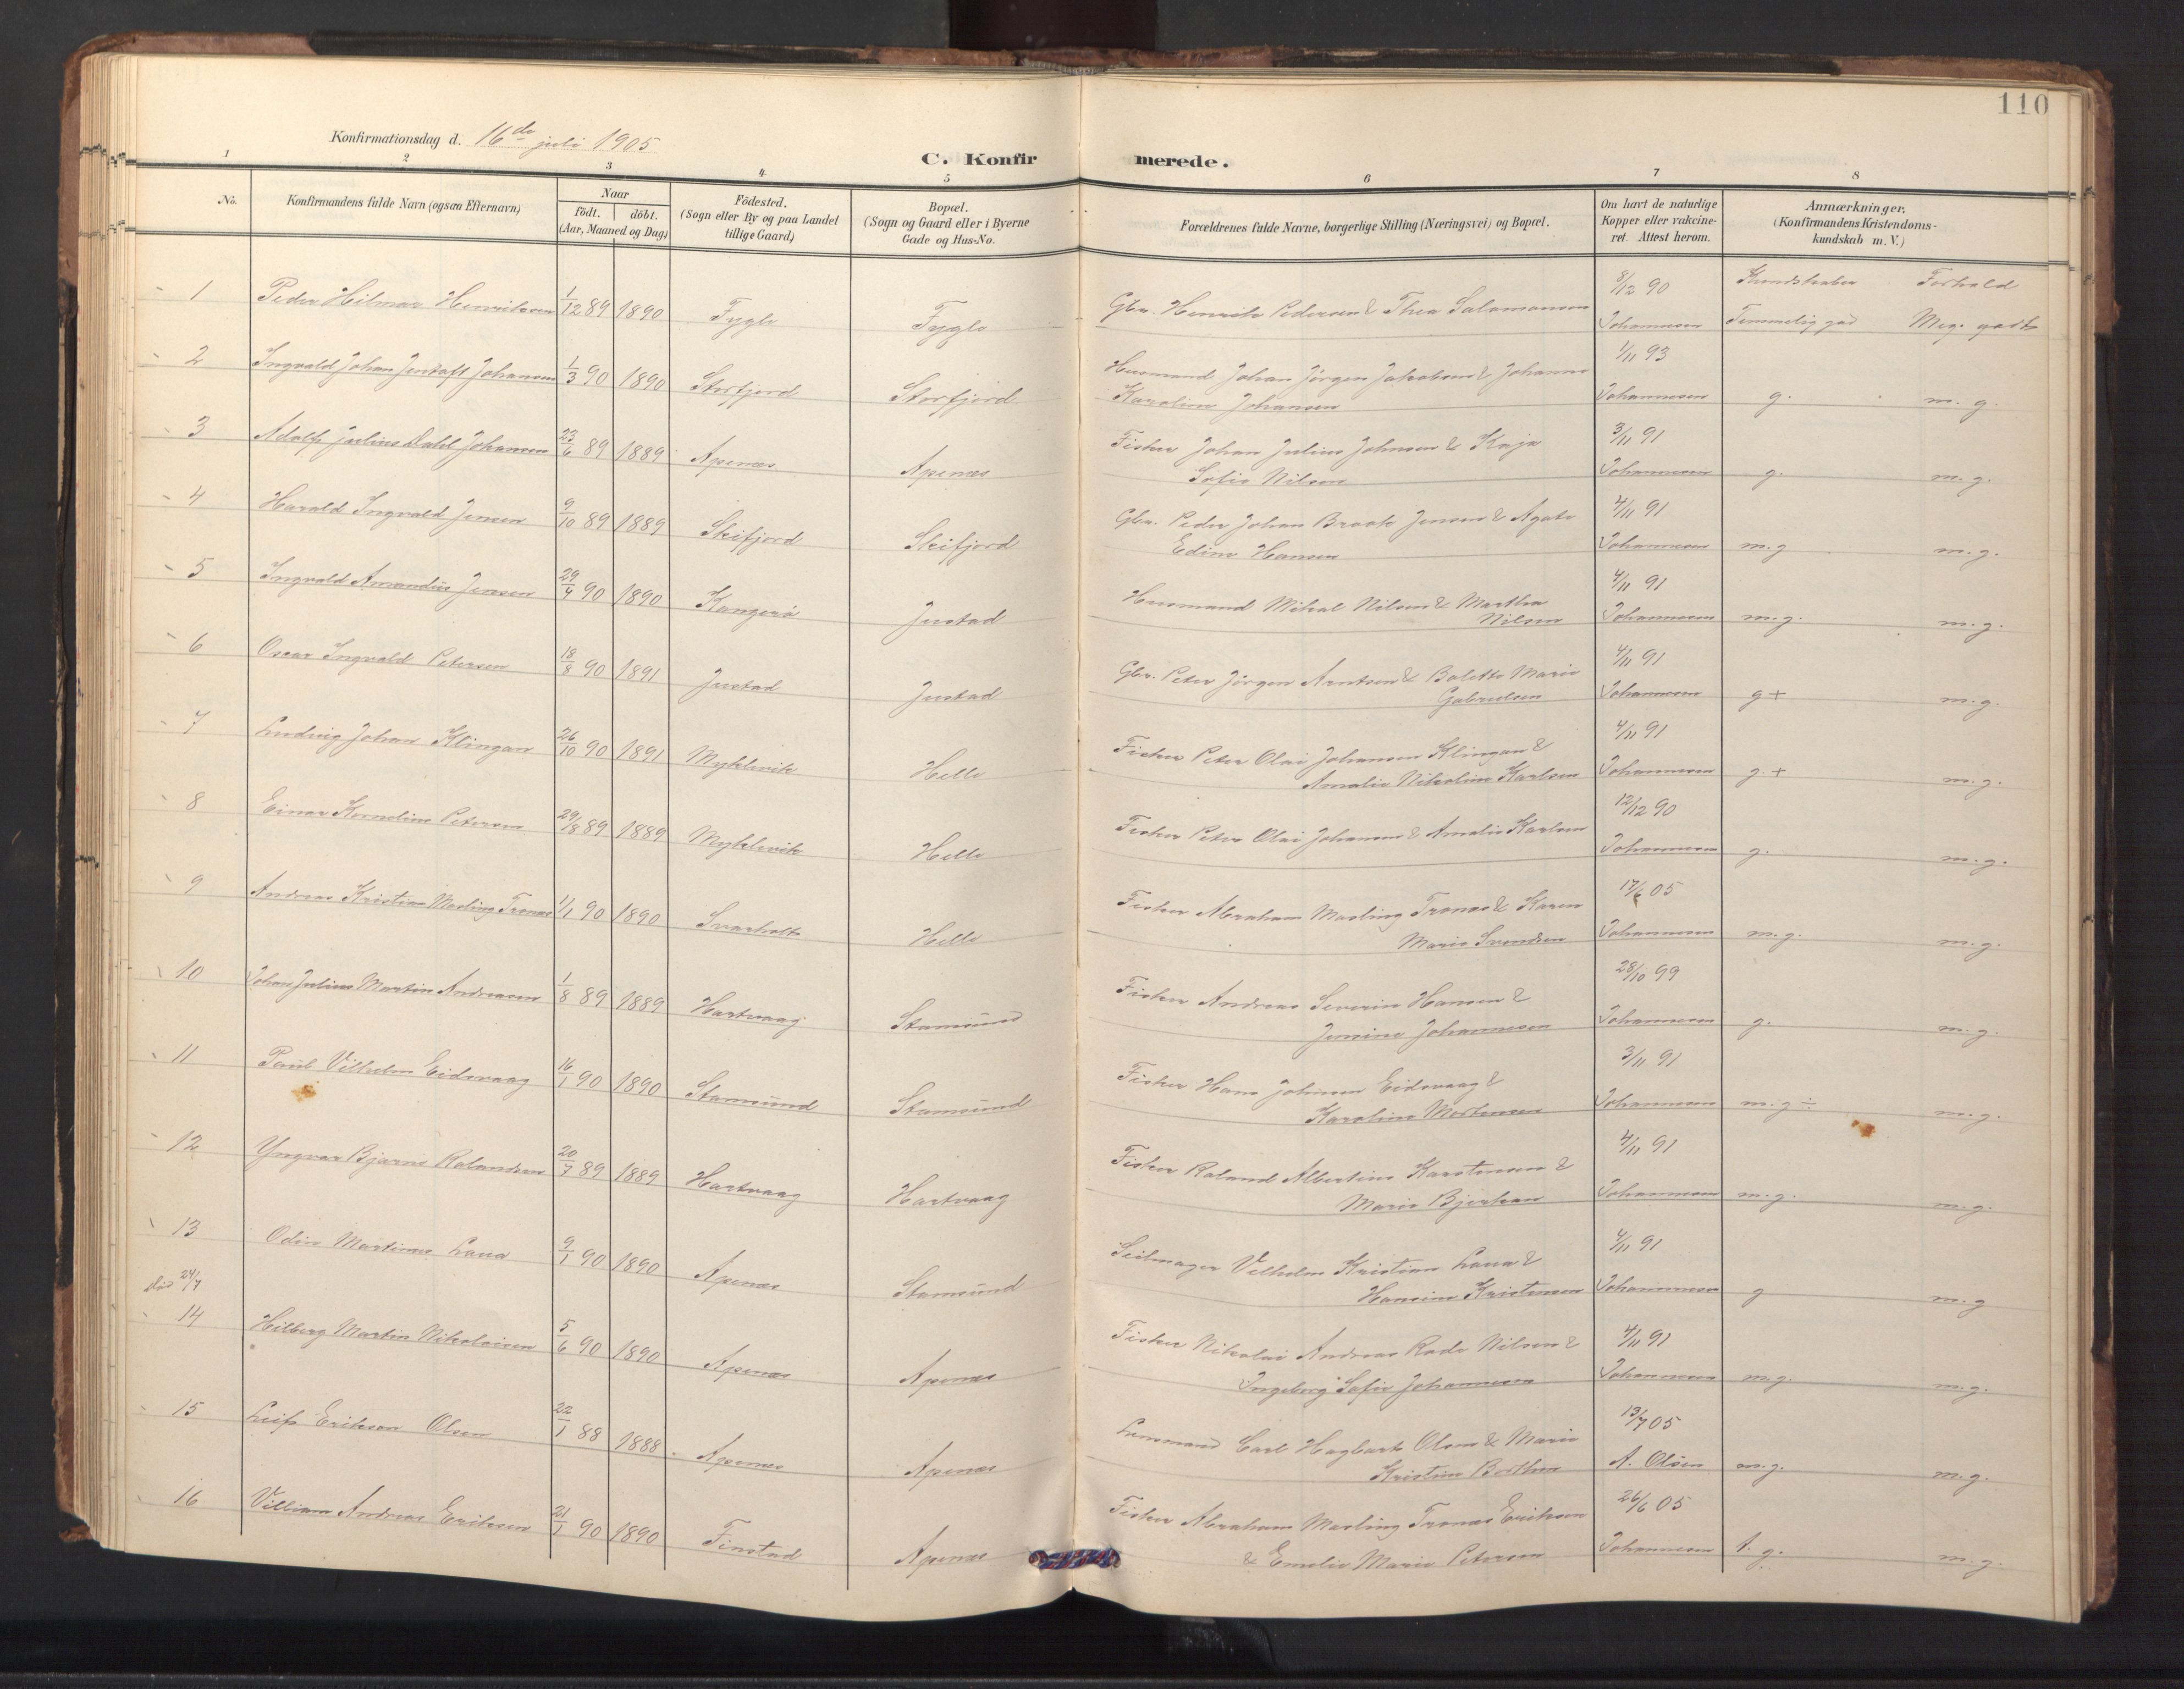 110
Konfirmationsdag d. 16de juli 1905
C. Konfirmerede.
1 2 3 4 5 6 7 8
No.
Konfirmandens fulde Navn (ogsaa Efternavn)
Naar
födt. döbt.
(Aar, Maaned og Dag)
Födested.
(Sogn eller By og paa Landet
tillige Gaard)
Bopæl.
(Sogn og Gaard eller i Byerne
Gade og Hus-No.
Forældrenes fulde Navne, borgerlige Stilling (Næringsvei) og Bopæl.
Om havt de naturlige
Kopper eller vakcine-
ret. Attest herom.
Anmærkninger.
(Konfirmandens Kristendoms-
kundskab m. V.)
Kundskaber Forhold
1 Peder Hilmar Henriksen 1/12 89 1890 Fygle Fygle Gbr. Henrik Pedersen & Thea Salamonsen 8/12 90
Johannesen Temmelig god Meg. godt
2 Ingvald Johan Jentoft Johansen 1/3 90 1890 Storfjord Storfjord Husmand Johan Jörgen Jakobsen & Johanna 1/11 93
Karoline Johansen Johannesen g. m. g.
3 Adolf Julius Dahl Johansen 23/6 89 1889 Apenes Apenes Fisker Johan Julius Johnsen & Kaja 3/11 91
Sofie Nilsen Johannesen g. m. g.
4 Harald Ingvald Jensen 9/10 89 1889 Skifjord Skifjord Gbr. Peder Johan Jensen & Agate 4/11 91
Edine Hansen Johannesen m.g m. g.
5 Ingvald Amandus Jensen 29/4 90 1890 Kangerö Justad Husmand Mikal Nilsen & Martha 4/11 91
Nilsen Johannesen m.g. m. g.
6 Oscar Ingvald Petersen 18/8 90 1891 Justad Justad Gbr. Peter Jörgen Arntsen & Bolette Marie 4/11 91
Gabrielsen Johannesen g + m. g.
7 Ludvig Johan Klingan 26/10 90 1891 Myklevik Helle Fisker Peter Olai Johansen Klingan & 4/11 91
Amalie Nikoline Karlsen Johannesen g + m. g.
8 Einar Kornelius Petersen 29/8 89 1889 Myklevik Helle Fisker Peter Olai Johansen & Amalie Karlsen 12/12 90
Johannesen g. m. g.
9 Andreas Kristian Masling Tronas 1/1 90 1890 Svarholt Helle Fisker Abraham Masling Tronas & Karen 17/6 05
Marie Svendsen Johannesen m. g. m. g.
10 Johan Julius Martin Andreasen 1/8 89 1889 Hartvaag Stamsund Fisker Andreas Severin Hansen & 28/10 99
Jensine Johannesen Johannesen g. m. g.
11 Paul Vilhelm Eidsvaag 16/1 90 1890 Stamsund Stamsund Fisker Hans Johnsen Eidsvaag & 3/11 91
Karoline Mortensen Johannesen m. g ÷ m. g.
12 Yngvar Bjarne Rolandsen 20/7 89 1889 Hartvaag Hartvaag Fisker Roland Albertin Karstensen & 4/11 91
Marie Johannesen m. g. m. g.
13 Odin Martinus Laua 9/1 90 1890 Apenes Stamsund Seilmager Vilhelm Kristian Laua & 4/11 91
död 24/7 Hansine Kristensen Johannesen g m. g
14 Hilberg Martin Nikolaisen 5/6 90 1890 Apenes Apenes Fisker Nikolai Andreas Rode Nilsen & 4/11 91
Ingeborg Sofie Johannesen Johannesen m.g. m. g.
15 Leif Erikson Olsen 22/1 88 1888 Apenes Apenes Lensmand Carl Hagbart Olsen & Marie 13/7 05
Kristine A. Olsen m. g. m. g.
16 Villiam Andreas Eriksen 21/1 90 1890 Finstad Apenes Fisker Abraham Masling Tronas Eriksen 26/6 05
& Emelie Marie Petersen Johannesen t. g. m. g.